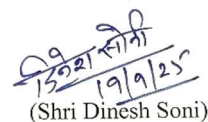 दिनेश सोनी
19/9/25
(Shri Dinesh Soni)